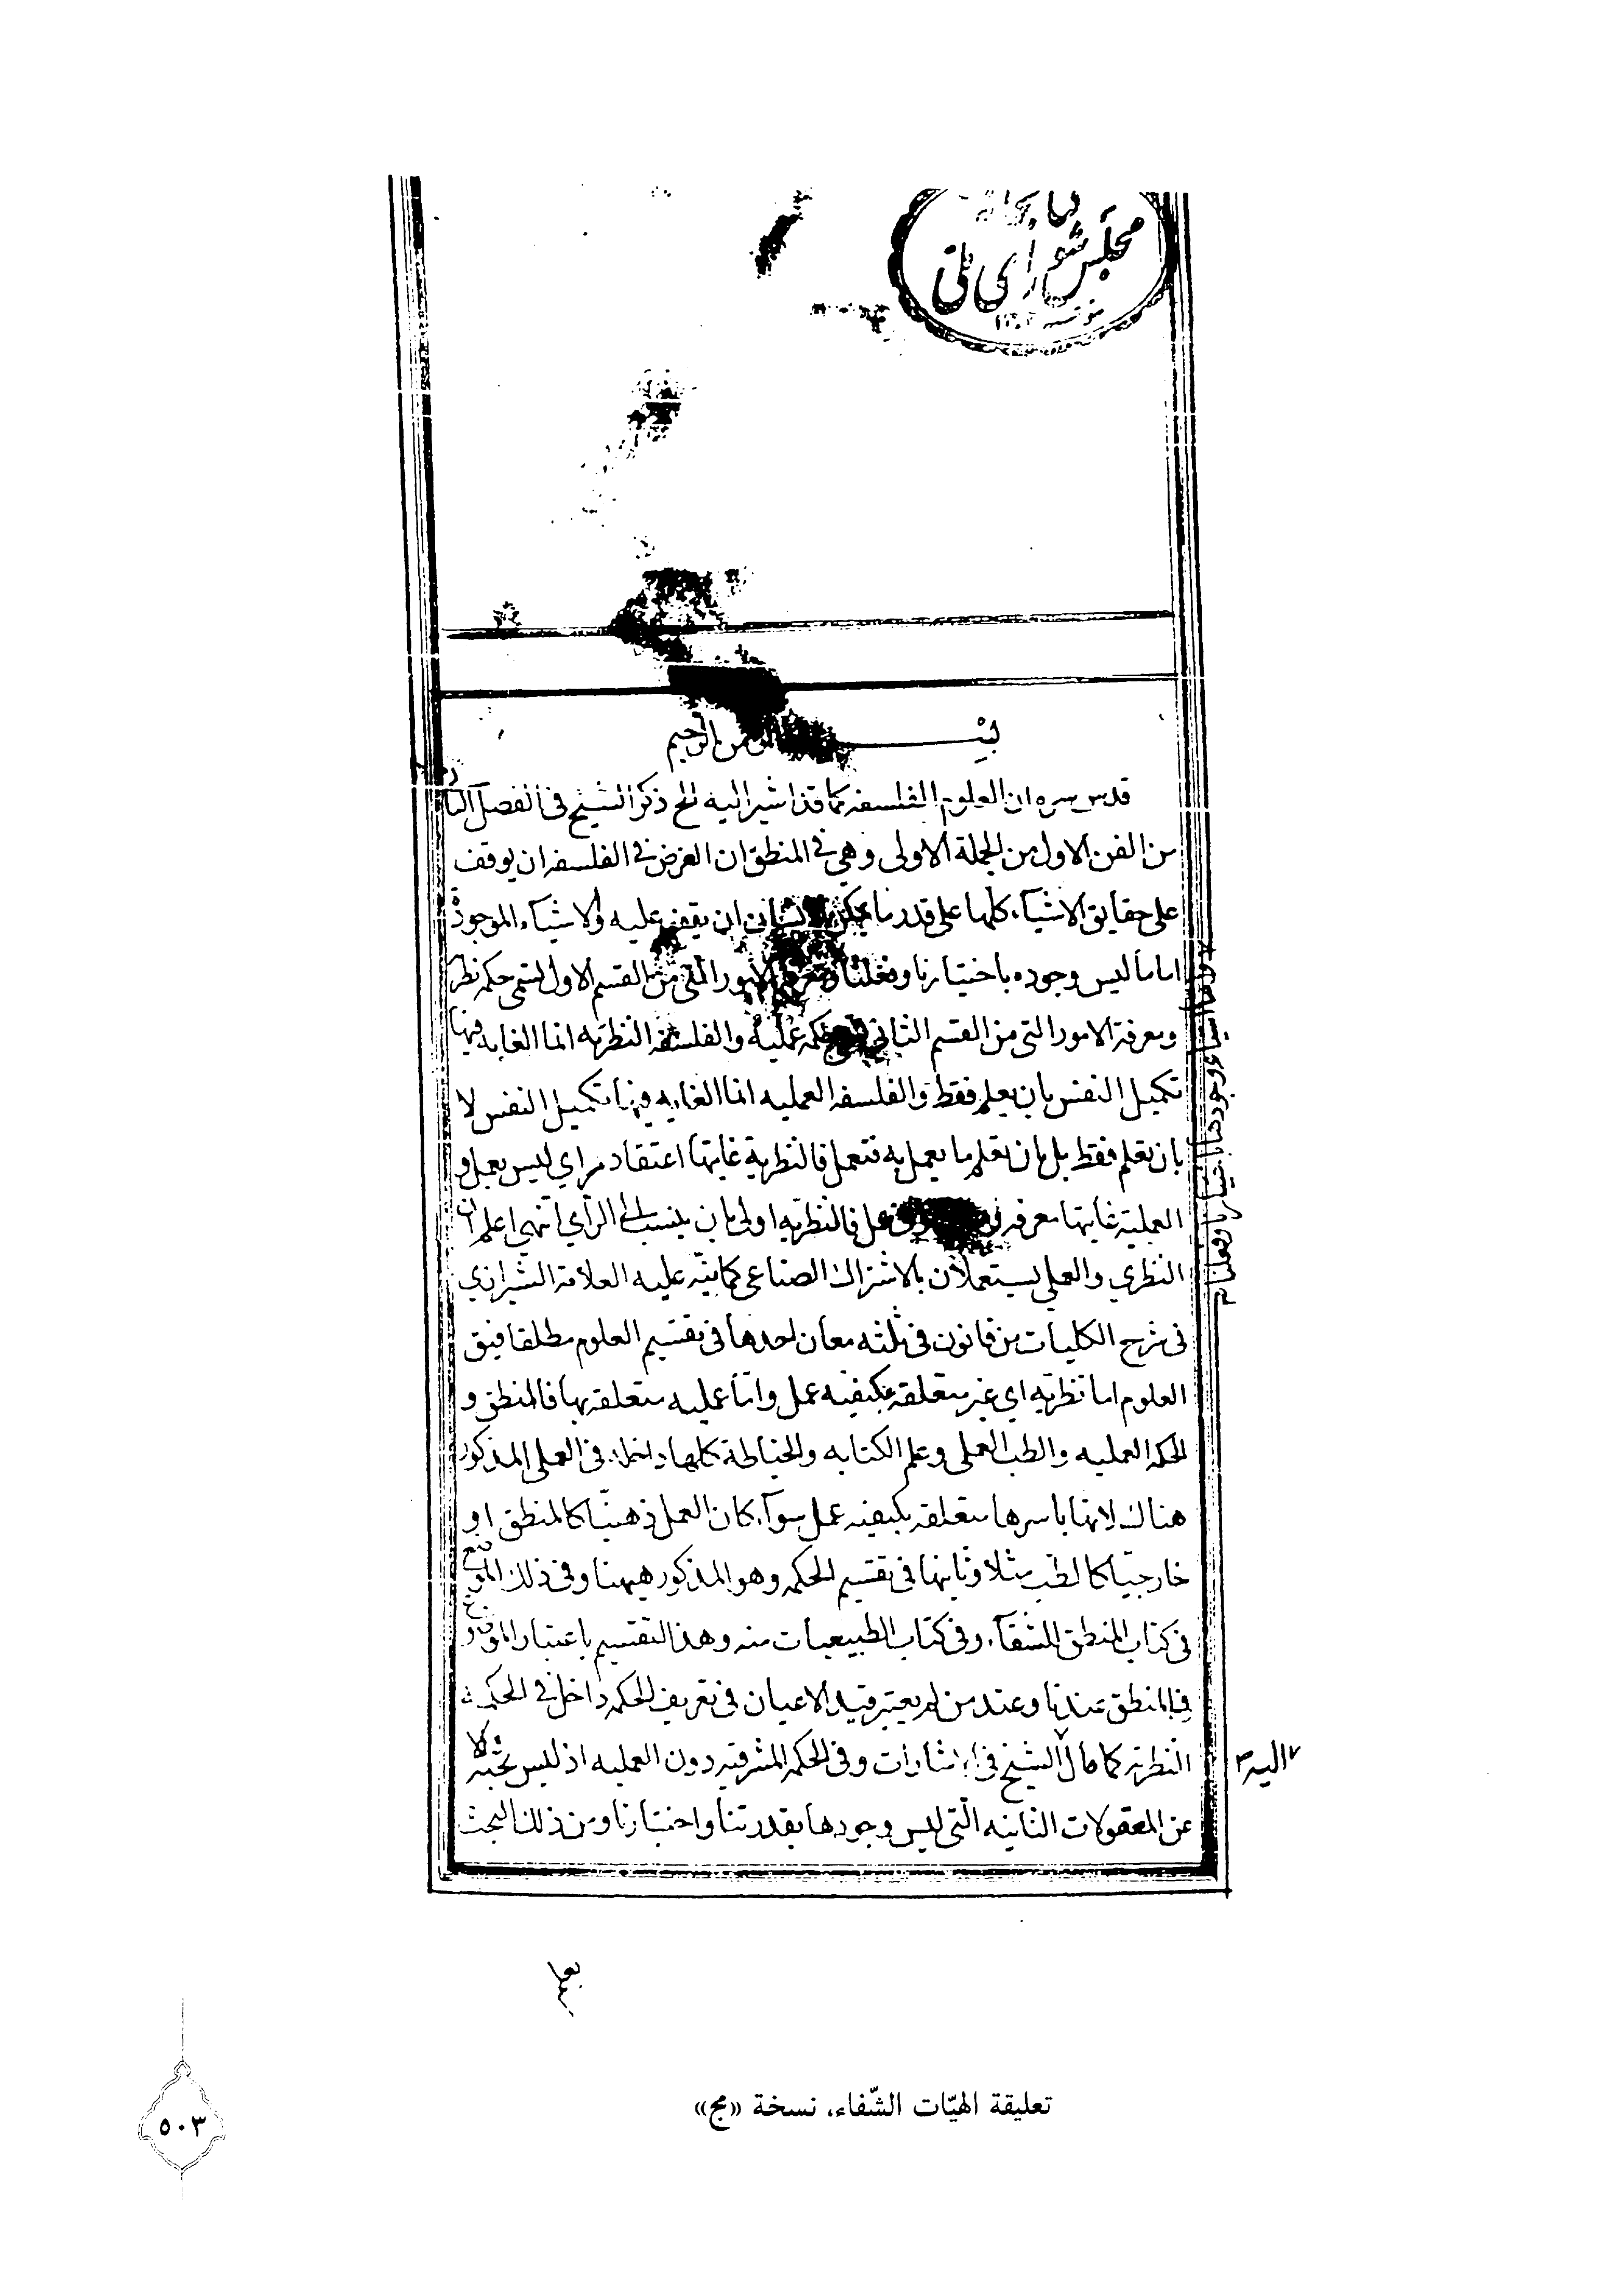 مجلس شورای ملی
بسـم الرحمن الرحيم
قدس سره ان العلوم الفلسفيه كما قد اشير اليه الخ ذكر الشيخ فى الفصل الثا
من الفن الاول من الجملة الاولى وهى فى المنطق ان الغرض فى الفلسفه ان يوقف
على حقايق الاشيآء كلها على قدر ما يمكن الانسان ان يقف عليه والاشيآء الموجودة
اما ما ليس وجوده باختيارنا وفعلنا ومعرفة الامور التى من القسم الاول تسمى حكمه نظر
ومعرفة الامور التى من القسم الثانى حكمه عمليه والفلسفه النظريه انما الغايه فيها
تكميل النفس بان يعلم فقط والفلسفه العمليه انما الغايه فيها تكميل النفس لا
بان تعلم فقط بل بان تعلم ما يعمل به فتعمل فالنظرية غايتها اعتقاد راي ليس بعمل و
العملية غايتها معرفه عمل فالنظريه اولى بان ينسب الى الراي انتهى اعلم ان
النظري والعملي يستعملان بالاشتراك الصناعى كما نبّه عليه العلامة الشيرازي
فى شرح الكليات من قانون فى ثلثه معان احدها فى تقسيم العلوم مطلقا فيق
العلوم اما نظريه اي غير متعلقه بكيفيه عمل واما عمليه متعلقه بها فالمنطق و
الحكمه العمليه والطب العملى وعلم الكتابه والخياطة كلها داخله فى العملى المذكور
هناك لانها باسرها متعلقه بكيفيه عمل سوآء كان العمل ذهنيّا كالمنطق او
خارجيّا كالطب مثلا وثانيها فى تقسيم الحكمه وهو المذكور ههنا وفى ذلك الموضع
فى كتاب المنطق للشفآء وفى كتاب الطبيعيات منه وهذا التقسيم باعتبار الموضوع
فالمنطق عندنا وعند من لم يعتبر قيد الاعيان فى تعريف الحكمه داخل فى الحكمة
النظريه كما مال الشيخ فى الاشارات وفى الحكمه المشرقيه دون العمليه اذ ليس بحثه الا
عن المعقولات الثانيه التى ليس وجودها بقدرتنا واختيارنا ومن ذلك البحث
اليه
تعليقة الهيّات الشّفاء، نسخة «مج»
٥٠٣